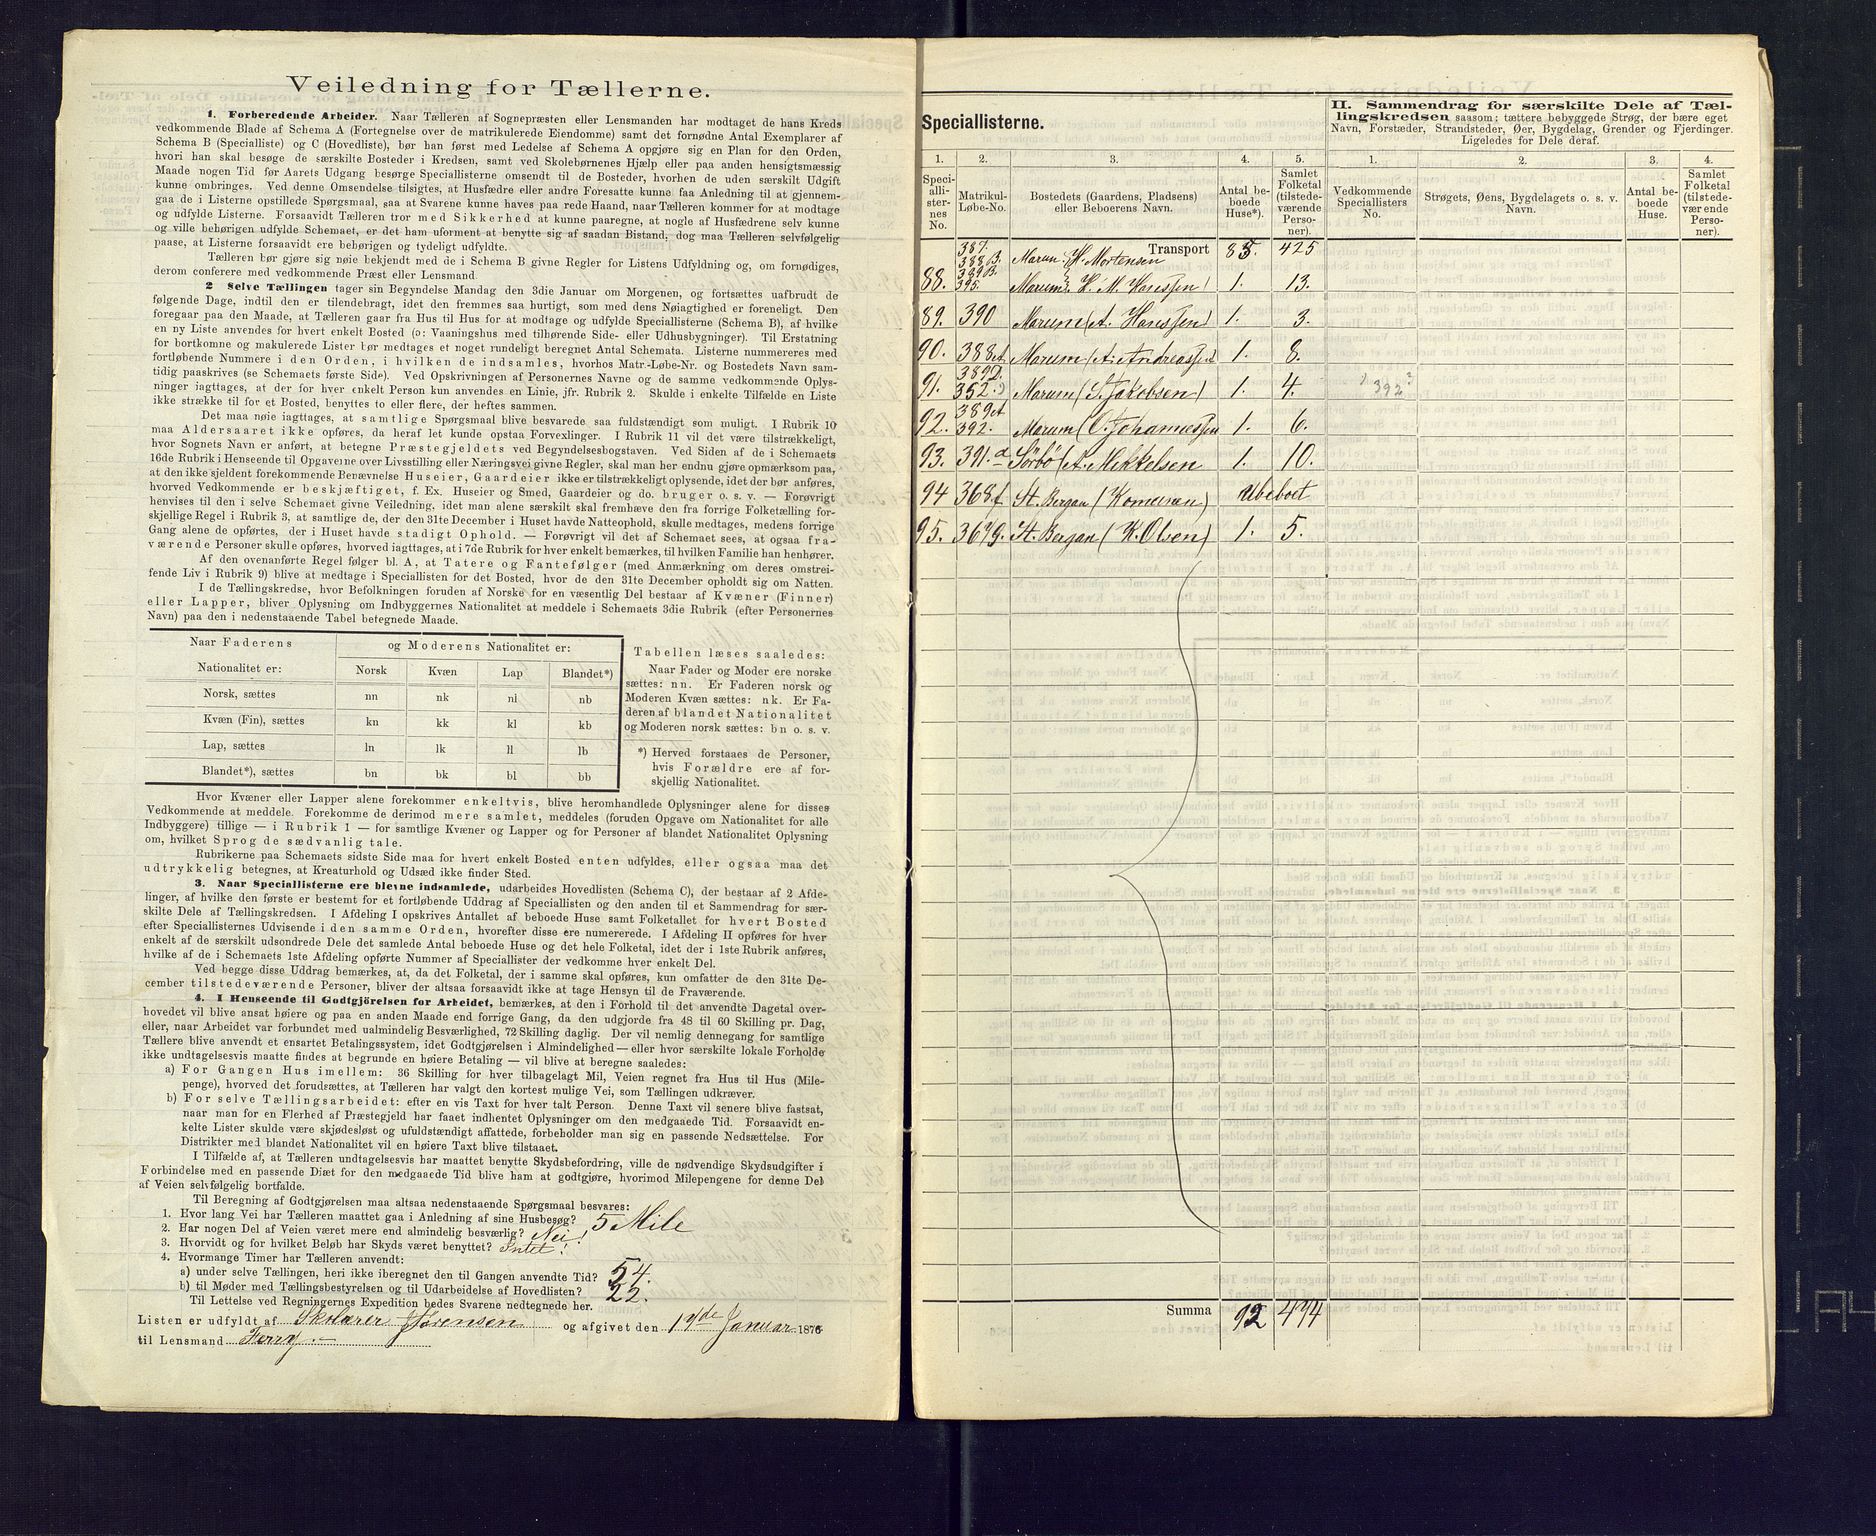 Veiledning for Tællerne.
1. Forberedende Arbeider. Naar Tælleren af Sognepræsten eller Lensmanden har modtaget de hans Kreds
vedkommende Blade af Schema A (Fortegnelse over de matrikulerede Eiendomme) samt det fornødne Antal Exemplarer af
Schema B (Specialliste) og C (Hovedliste), bør han først med Ledelse af Schema A opgjøre sig en Plan for den Orden,
hvori han skal besøge de særskilte Bosteder i Kredsen, samt ved Skolebørnenes Hjælp eller paa anden hensigtsmæssig
Maade nogen Tid før Aarets Udgang besørge Speciallisterne omsendt til de Bosteder, hvorhen de uden særskilt Udgift
kunne ombringes. Ved denne Omsendelse tilsigtes, at Husfædre eller andre Foresatte kunne faa Anledning til at gjennem-
gaa de i Listerne opstillede Spørgsmaal, saa at Svarene kunne haves paa rede Haand, naar Tælleren kommer for at modtage
og udfylde Listerne. Forsaavidt Tælleren tror med Sikkerhed at kunne paaregne, at nogle af Husfædrene selv kunne
og ville behørigen udfylde Schemaet, er det ham uforment at benytte sig af saadan Bistand, dog maa Tælleren selvfølgelig
paase, at Listerne forsaavidt ere behørigen og tydeligt udfyldte.
Tælleren bør gjøre sig nøie bekjendt med de i Schema B givne Regler for Listens Udfyldning og, om fornødiges,
derom conferere med vedkommende Præst eller Lensmand.
2 Selve Tællingen tager sin Begyndelse Mandag den 3die Januar om Morgenen, og fortsættes uafbrudt de
følgende Dage, indtil den er tilendebragt, idet den fremmes saa hurtigt, som med dens Nøiagtighed er foreneligt. Den
foregaar paa den Maade, at Tælleren gaar fra Hus til Hus for at modtage og udfylde Speciallisterne (Schema B), af hvilke
en ny Liste anvendes for hvert enkelt Bosted (ɔ: Vaaningshus med tilhørende Side- eller Udhusbygninger). Til Erstatning
for bortkomne og makulerede Lister bør medtages et noget rundeligt beregnet Antal Schemata. Listerne nummereres med
fortløbende Nummere i den Orden, i hvilken de indsamles, hvorhos Matr.-Løbe-Nr. og Bostedets Navn sam-
tidig paaskrives (se Schemaets første Side). Ved Opskrivningen af Personernes Navne og de samme vedkommende Oplys-
ninger iagttages, at der for hver enkelt Person kun anvendes en Linie, jfr. Rubrik 2. Skulde i enkelte Tilfælde en Liste
ikke strække til for et Bosted, benyttes to eller flere, der heftes sammen.
Det maa nøie iagttages, at samtlige Spørgsmaal blive besvarede saa fuldstændigt som muligt. I Rubrik 10
maa Aldersaaret ikke opføres, da heraf let kunde opstaa Forvexlinger. I Rubrik 11 vil det være tilstrækkeligt,
hvor Sognets Navn er anført, at betegne Præstegjeldets ved Begyndelsesbogstaven. Ved Siden af de i Schemaets
16de Rubrik i Henseende til Opgaverne over Livsstilling eller Næringsvei givne Regler, skal man her endnu gjøre opmærksom paa,
at den ikke sjeldent forekommende Benævnelse Huseier, Gaardeier ikke er tilstrækkeligt oplysende, idet der bør anføres,
hvorved Vedkommende er beskjæftiget, f. Ex. Huseier og Smed, Gaardeier og do. bruger o. s. v. — Forøvrigt
henvises til den i selve Schemaet givne Veiledning, idet man alene særskilt skal fremhæve den fra forrige Folketælling for-
skjellige Regel i Rubrik 3, at samtlige de, der den 31te December i Huset havde Natteophold, skulle medtages, medens forrige
Gang alene de opførtes, der i Huset havde stadigt Ophold. — Forøvrigt vil det af Schemaet sees, at ogsaa fra-
værende Personer skulle opføres, hvorved iagttages, at i 7de Rubrik for hver enkelt bemærkes, til hvilken Familie han henhører.
Af den ovenanførte Regel følger bl. A, at Tatere og Fantefølger (med Anmærkning om deres omstrei-
fende Liv i Rubrik 9) blive at medtage i Speciallisten for det Bosted, hvor de den 31te December opholdt sig om Natten.
I de Tællingskredse, hvor Befolkningen foruden af Norske for en væsentlig Del bestaar af Kvæner (Finner)
eller Lapper, bliver Oplysning om Indbyggernes Nationalitet at meddele i Schemaets 3die Rubrik (efter Personernes
Navn) paa den i nedenstaaende Tabel betegnede Maade.
Naar Faderens og Moderens Nationalitet er:
Nationalitet er: Norsk Kvæn Lap Blandet*)
Norsk, sættes nn nk nl nb
Kvæn (Fin), sættes kn kk kl kb
Lap, sættes ln lk ll lb
Blandet*), sættes bn bk bl bb
Tabellen læses saaledes:
Naar Fader og Moder ere norske
sættes: nn. Er Faderen norsk og
Moderen Kvæn sættes: nk. Er Fa-
deren af blandet Nationalitet
og Moderen norsk sættes: bn o. s. v.
*) Herved forstaaes de Personer,
hvis Forældre ere af for-
skjellig Nationalitet.
Hvor Kvæner eller Lapper alene forekommer enkeltvis, blive heromhandlede Oplysninger alene for disses
Vedkommende at meddele. Forekomme de derimod mere samlet, meddeles (foruden Opgave om Nationalitet for alle
Indbyggere) tillige — i Rubrik 1 — for samtlige Kvæner og Lapper og for Personer af blandet Nationalitet Oplysning
om, hvilket Sprog de sædvanlig tale.
Rubrikerne paa Schemaets sidste Side maa for hvert enkelt Bosted enten udfyldes, eller ogsaa maa det
udtrykkelig betegnes, at Kreaturhold og Udsæd ikke finder Sted.
3. Naar Speciallisterne ere blevne indsamlede, udarbeides Hovedlisten (Schema C), der bestaar af 2 Afde-
linger, af hvilke den første er bestemt for et fortløbende Uddrag af Speciallisten og den anden til et Sammendrag for sær-
skilte Dele af Tællingskredsen. I Afdeling I opskrives Antallet af beboede Huse samt Folketallet for hvert Bosted
efter Speciallisternes Udvisende i den samme Orden, hvorefter disse ere numererede. I Afdeling II opføres for hver
enkelt af de særskilt udsondrede Dele det samlede Antal beboede Huse og det hele Folketal, idet der i 1ste Rubrik anføres,
hvilke af de i Schemaets 1ste Afdeling opførte Nummer af Speciallister der vedkomme hver enkelt Del.
Ved begge disse Uddrag bemærkes, at, da det Folketal, der i samme skal opføres, kun omfatter de den 31te De-
cember tilstedeværende Personer, bliver der altsaa forsaavidt ikke at tage Hensyn til de Fraværende.
4. I Henseende til Godtgjörelsen for Arbeidet, bemærkes, at den i Forhold til det anvendte Dagetal over-
hovedet vil blive ansat høiere og paa en anden Maade end forrige Gang, da den udgjorde fra 48 til 60 Skilling pr. Dag,
eller, naar Arbeidet var forbundet med ualmindelig Besværlighed, 72 Skilling daglig. Der vil nemlig dennegang for samtlige
Tællere blive anvendt et ensartet Betalingssystem, idet Godtgjörelsen i Almindelighed — eller hvor særskilte lokale Forholde
ikke undtagelsesvis maatte findes at begrunde en høiere Betaling — vil blive at beregne saaledes:
a) For Gangen Hus imellem: 36 Skilling for hver tilbagelagt Mil, Veien regnet fra Hus til Hus (Mile-
penge), hvorved det forudsættes, at Tælleren har valgt den kortest mulige Vei, som Tællingen udkræver.
b) For selve Tællingsarbeidet: efter en vis Taxt for hver talt Person. Denne Taxt vil senere blive fastsat,
naar man for en Flerhed af Præstegjeld har faaet indhentet Oplysninger om den medgaaede Tid. Forsaavidt en-
kelte Lister skulde være skjødesløst og ufuldstændigt affattede, forbeholder man sig en passende Nedsættelse. For
Distrikter med blandet Nationalitet vil en høiere Taxt blive tilstaaet.
I Tilfælde af, at Tælleren undtagelsesvis har maattet benytte Skydsbefordring, ville de nødvendige Skydsudgifter i
Forbindelse med en passende Diæt for den medgaaede Tid blive ham at godtgjøre, hvorimod Milepengene for denne Del
af Veien selvfølgelig bortfalde.
Til Beregning af Godtgjörelsen maa altsaa nedenstaaende Spørgsmaal besvares:
1. Hvor lang Vei har Tælleren maattet gaa i Anledning af sine Husbesøg? 5 Mile
2. Har nogen Del af Veien været mere end almindelig besværlig? Nei!
3. Hvorvidt og for hvilket Beløb har Skyds været benyttet? Intet!
4. Hvormange Timer har Tælleren anvendt:
a) under selve Tællingen, heri ikke iberegnet den til Gangen anvendte Tid? 54.
b) til Møder med Tællingsbestyrelsen og til Udarbeidelse af Hovedlisten? 22.
Til Lettelse ved Regningernes Expedition bedes Svarene nedtegnede her.
Listen er udfyldt af Skolærer Sørensen og afgivet den 17de Januar 1876
til Lensmand Ferry.—
Speciallisterne.
II. Sammendrag for særskilte Dele af Tæl-
lingskredsen saasom: tættere bebyggede Strøg, der bære eget
Navn, Forstæder, Strandsteder, Øer, Bygdelag, Grender og Fjerdinger.
Ligeledes for Dele deraf.
1. 2. 3. 4. 5. 1. 2. 3. 4.
Speci-
allli-
sternes
No.
Matrikul-
Løbe-No.
Bostedets (Gaardens, Pladsens)
eller Beboerens Navn.
Antal be-
boede
Huse*).
Samlet
Folketal
(tilstede-
værende
Perso-
ner).
Vedkommende
Speciallisters
No.
Strøgets, Øens, Bygdelagets o. s. v.
Navn.
Antal be-
boede
Huse.
Samlet
Folketal
(tilstede-
værende
Perso-
ner).
387. 388B. Marum (H. Mortensen Transport 85 425
88. 389B. 395. Marum (H. M. Hanssen) 1. 13.
89. 390 Marum (A. Hanssen) 1. 3.
90. 388A. Marum (A. Andreassen 1. 8.
91. 389D. 352.) Marum (S. Jakobsen) 1. 4. ) 392?
92. 389A 392. Marum (O. Johannessen 1. 6.
93. 391.a Sörbö (A. Mikkelsen 1. 10.
94 368.f St. Bergan (Komersen) Ubeboet
95. 367g. St. Bergan (K. Olsen) 1. 5.
Summa 92 474